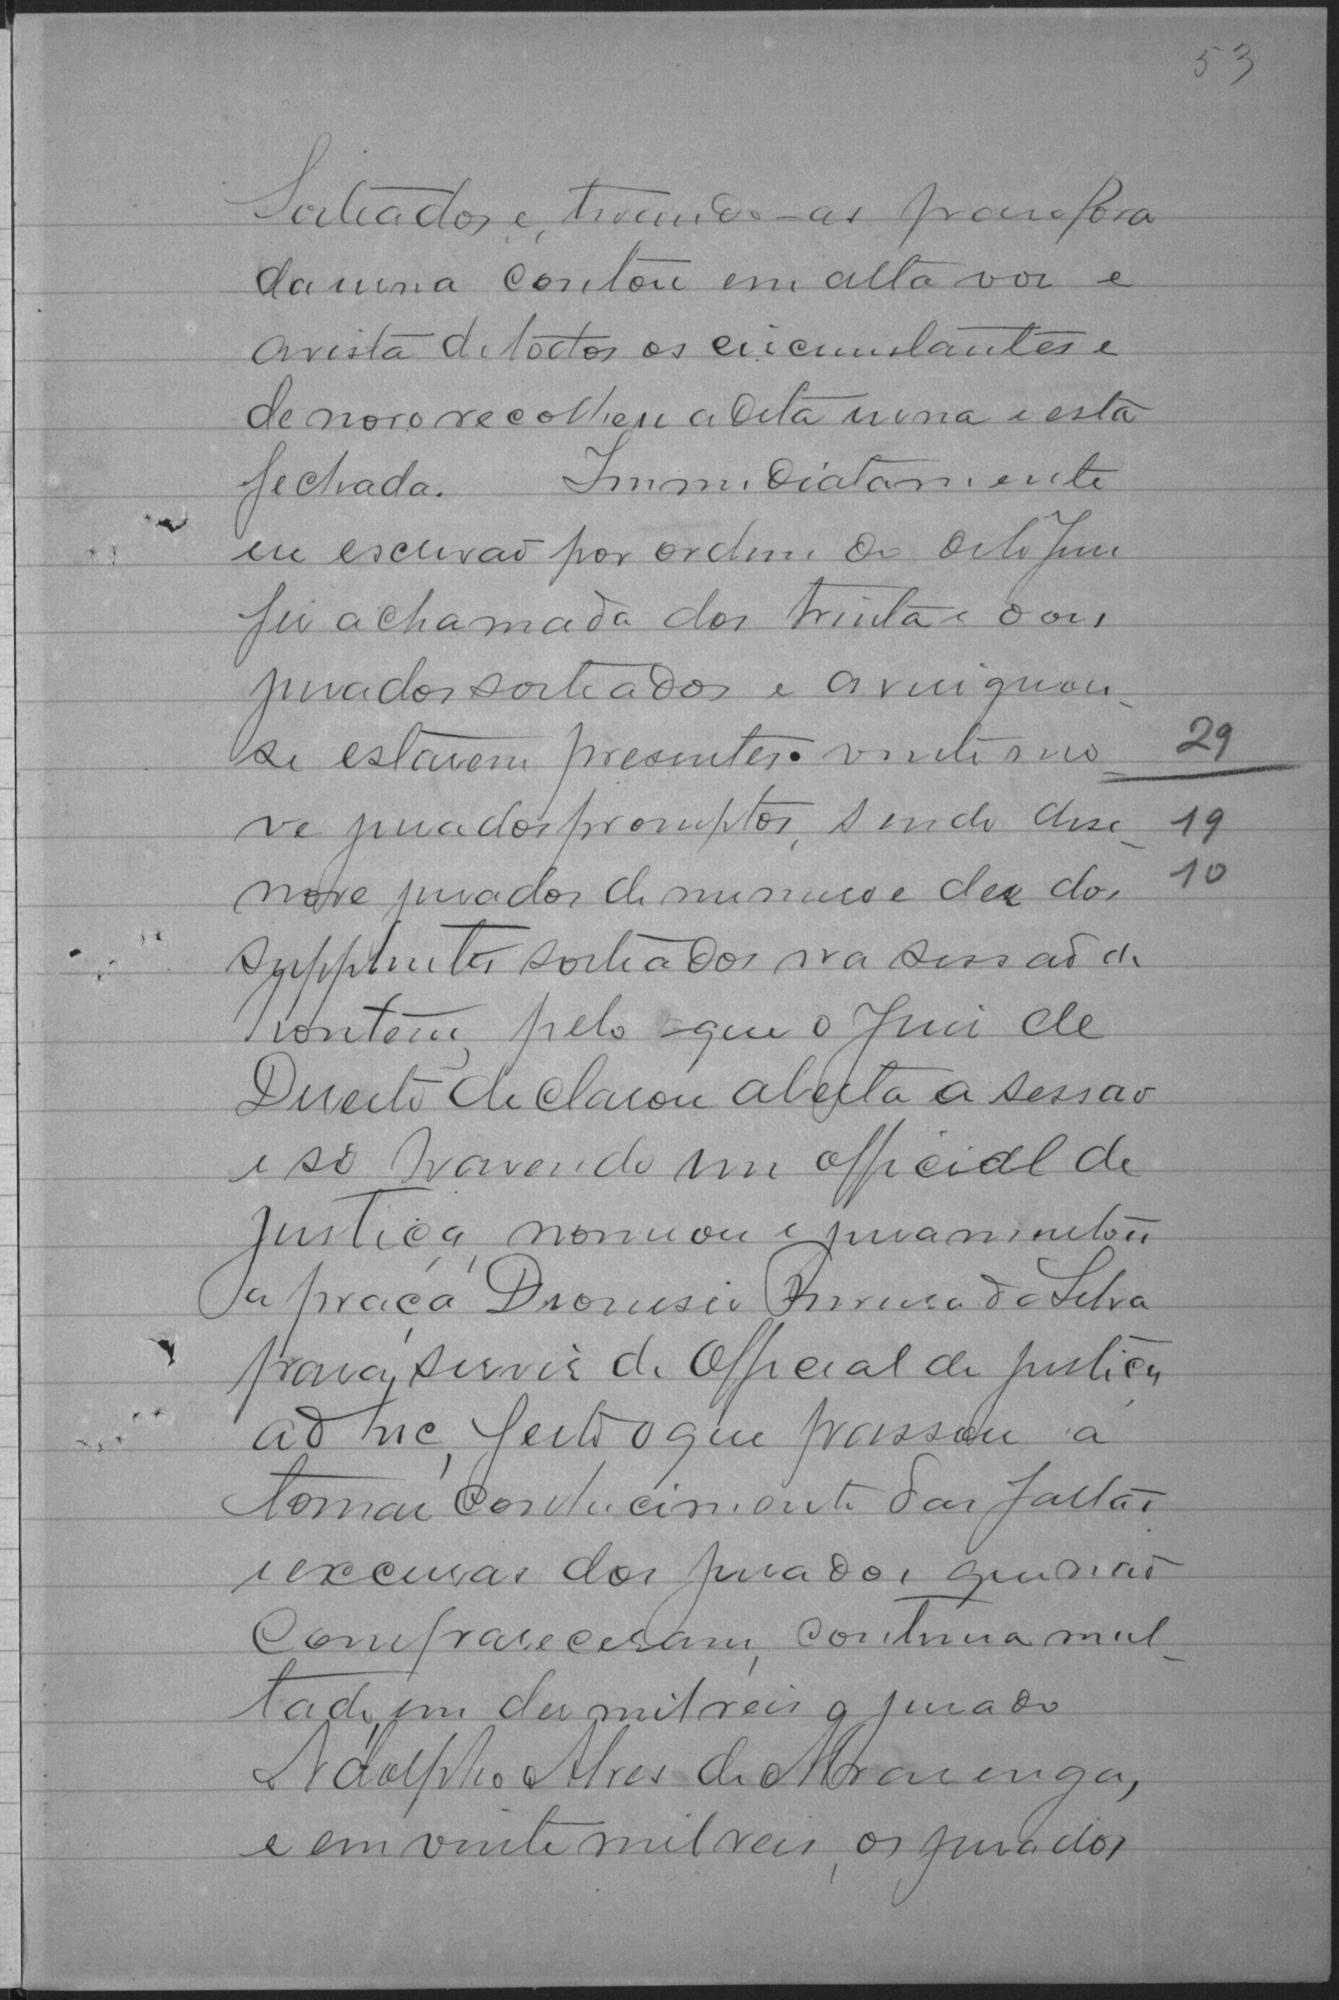 53
Sorteados e, tirando-as para fora
da urna contou em alta voz e
a vista de todos os circumstantes e
de novo recolheu a dita urna e está
fechada. Immediatamente
eu escrivaõ por ordem do dito Juiz
fiz a chamada dos trinta e dous
jurados sorteados e averiguou-
se estarem presentes vinte e no- 29
ve jurados promptos, sendo dese- 19
nove jurados do numero e dez dos 10
supplentes sorteados na sessaõ de
hontem, pelo que o Juiz de
Direito declarou aberta a sessaõ
e só havendo um official de
justiça, nomeou e juramentou
a praça Dionisio da Silva
para, servir de Official de justiça
ad hoc, feito o que passou a
tomar conhecimento das faltas
e excusas dos jurados que naõ
compareceram, continua mul-
tado, em dez mil reis o jurado
Adolpho Alves de Alvarenga,
e em vinte mil reis, os jurados